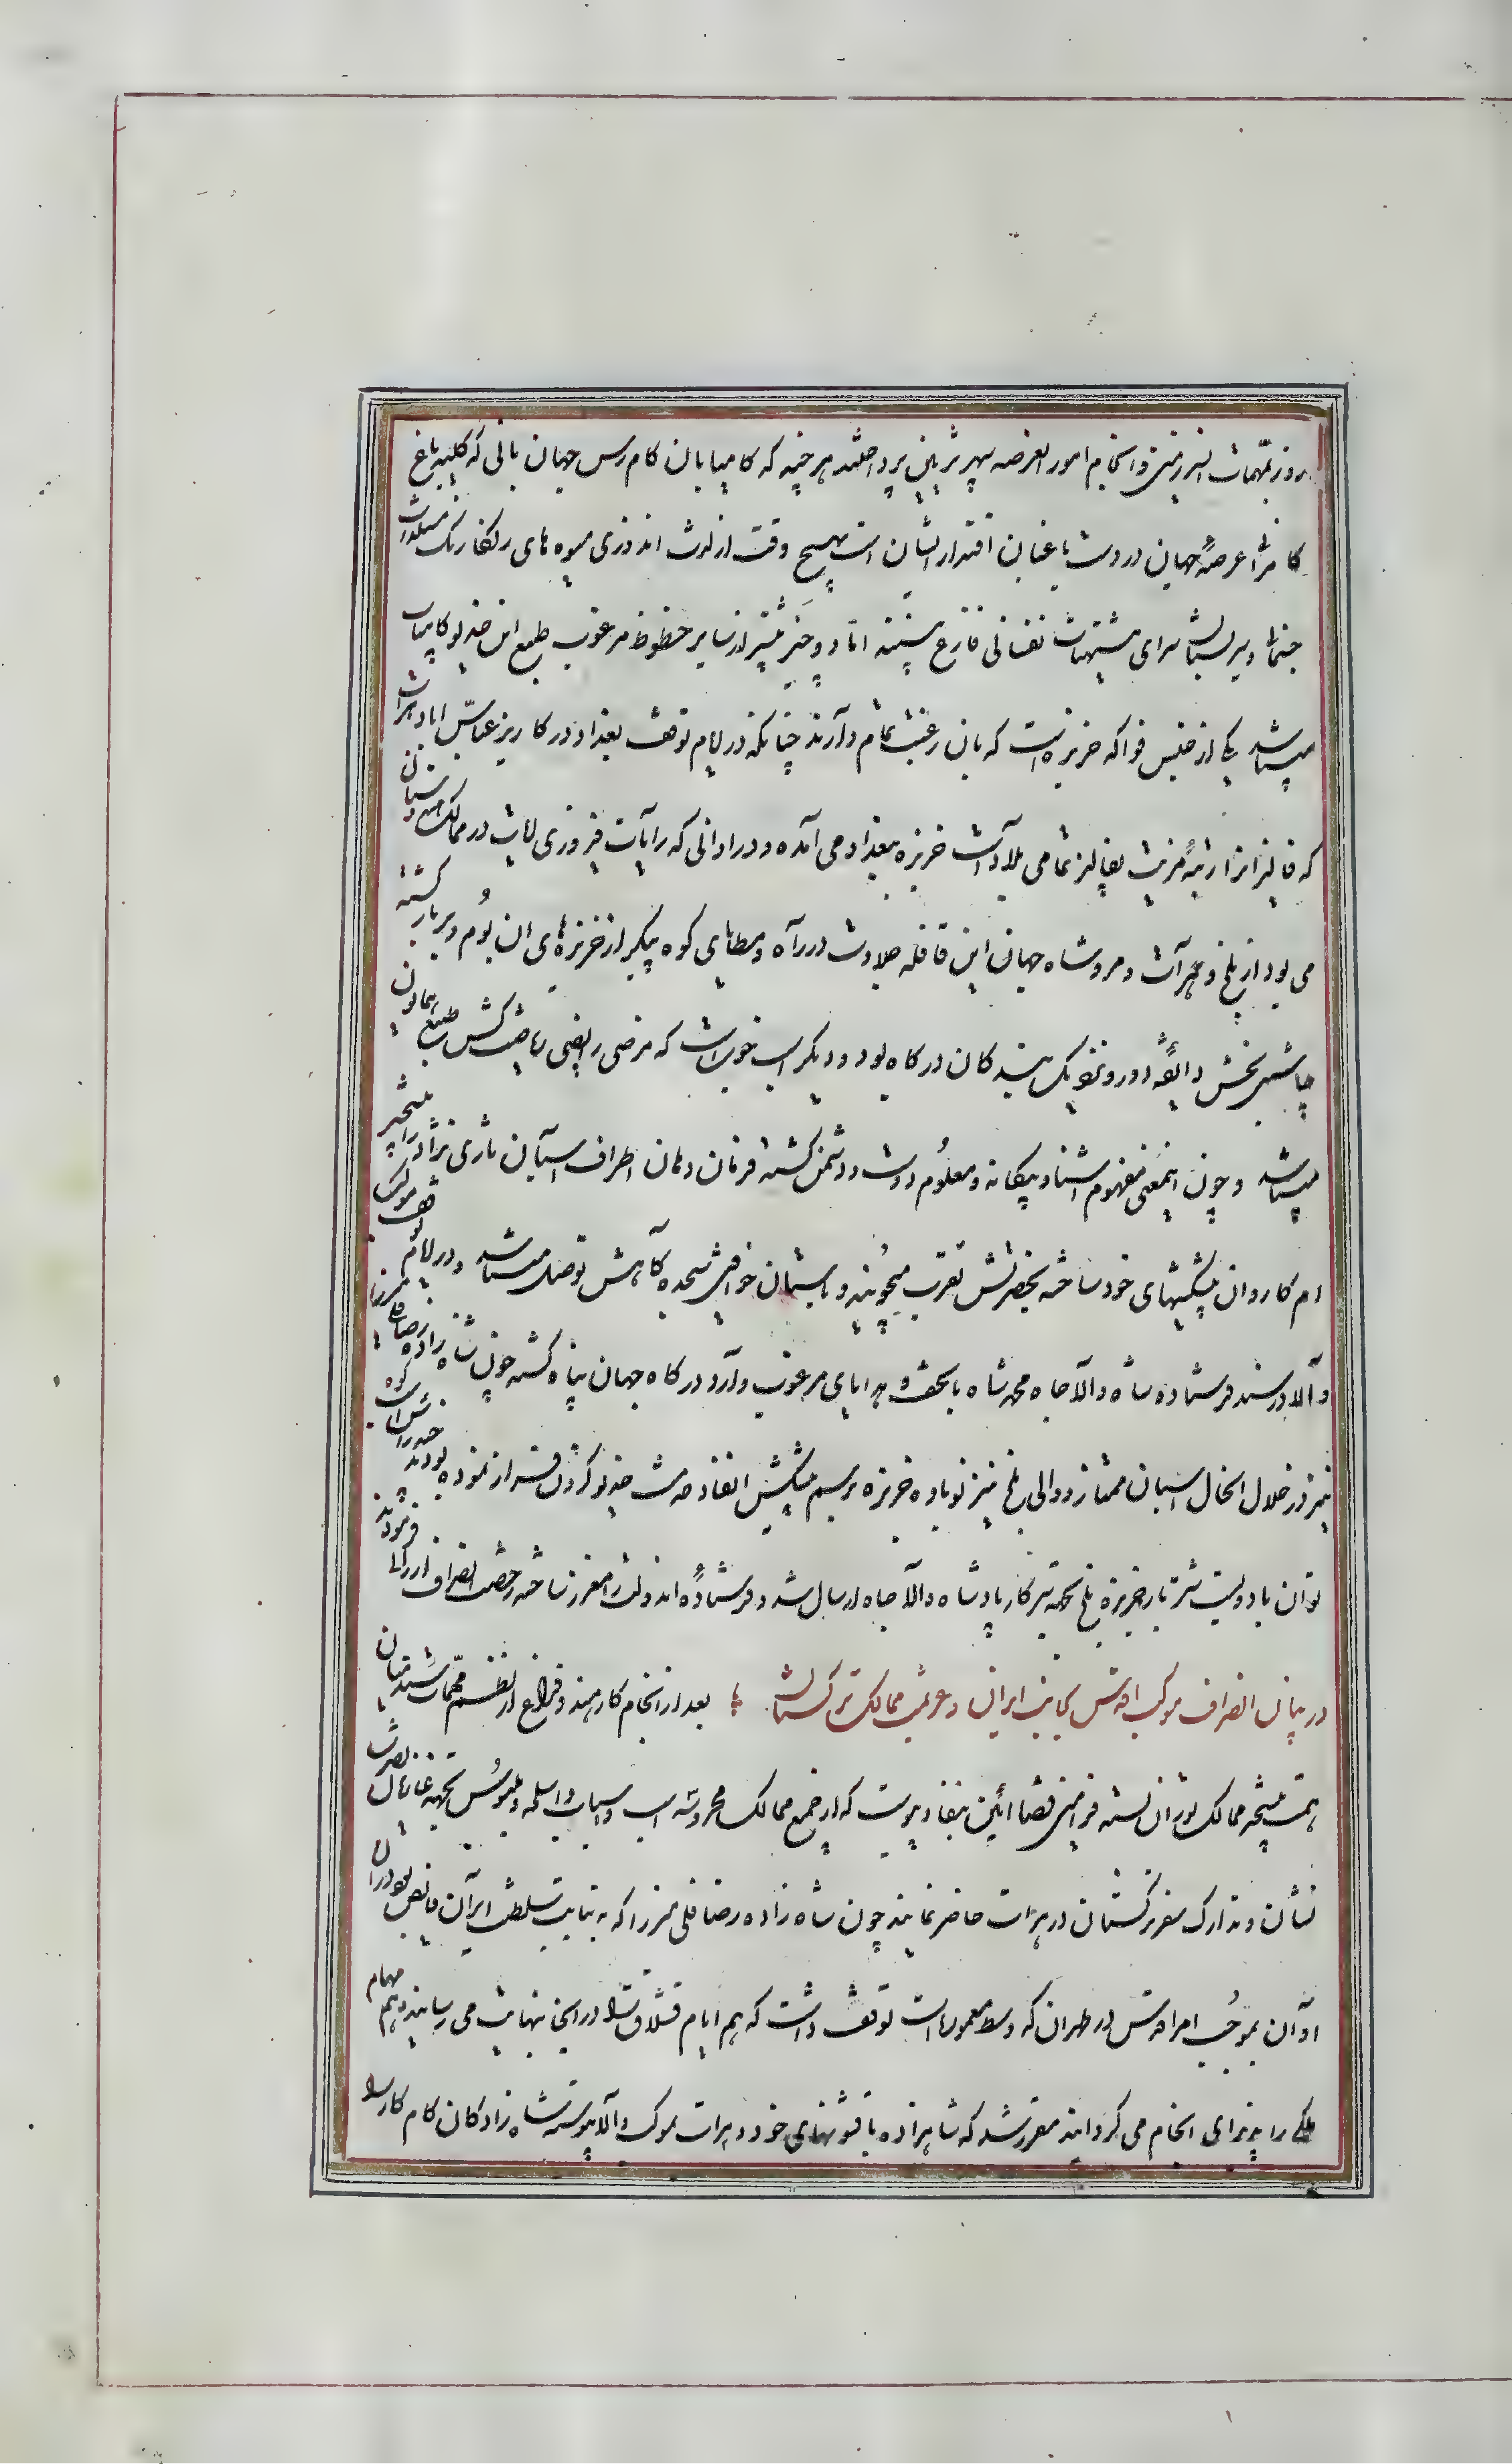 روز بمهمات انسرزمین و انجام امور العرضه سپهر تزیین پرداختند هر چند که کامیابان کام رس جهان بانی که کلید باغ
کامرانی عرصهٔ جهان در دست باغبان اقتدار ایشان است هیچ وقت از لذت اندوزی میوه های رنگارنگ مستلذات
جسمانی و سر بستان سرای مشتهیات نفسانی فارغ نیستند اما دو چیز بیشتر از سایر حظوظ مرغوب طبع این خدیو کامیاب
میباشد یکی از جنس فواکه خربزه است که بان رغبت تمام دارند چنانکه در ایام توقف بغداد در کاریز عباس اباد هرات
که فالیز انرا رتبهٔ مزیت بفالیز تمامی بلاد است خربزه ببغداد می آمده و در اوانی که رایات فیروزی ایات در ممالک هندوستان
می بود از بلخ و هرات و مرو شاه جهان این قافله حلاوت در راه و مطایای کوه پیکر از خربزه های ان بوم و بر بار کشته
چاشنی بخش ذایقهٔ دور و نزدیک بندکان درکاه بود و دیکر اسب خوب است که مرضی رایض ریاضت کش طبع همایون
میباشد و چون اینمعنی مفهوم اشنا و بیکانه و معلوم دوست و دشمن کشته فرمان دهان اطراف اسبان تازی نژاد را پیشخیر
ام کاروان پیشکشهای خود ساخته بحضرتش تقرب میجویند و باستان خواقین سجده کاهش توصل میباشد و در ایام توقف موکب
والا در سند فرستاده شاه والا جاه محمد شاه با تحف و هدایای مرغوب وارد درکاه جهان پناه کشته چون شاه زاده رضا قلی میرزا
نیز در خلال انحال اسبان ممتاز و والی بلخ نیز نوباوه خربزه برسم پیشکش انفاذ خدمت خدیو کردون فراز نموده بودند چند راس اسب کوه
توان با دویست شتر بار خربزه بلخ بجهة سرکار پادشاه والا جاه ارسال شد و فرستادهٔ اندولت را معزز ساخته رخصت انصراف ارزانی فرمودند
در بیان انصراف موکب اقدس بجانب ایران و عزیمت ممالک ترکستان بعد از انجام کار هند و فراغ از نظم مهمات سند عنان
همت بتسخیر ممالک توران بسته فرامین قضا ائین بنفاذ پیوست که از جمیع ممالک محروسه اسب و اسباب و اسلحه و ملبوس بجهة غازیان نصرت
نشان و تدارک سفر ترکستان در هرات حاضر نمایند چون شاه زاده رضا قلی میرزا که به نیابت سلطنت ایران فایض بود در ان
اوان بموجب امر اقدس در طهران که وسط معمور است توقف داشت که هم ایام قشلاق را در انجا بنهایت می رسانید و هم مهام
ملکی را پذیرای انجام می کردانید مقرر شد که شاهزاده با قشونهای خود در هرات بموکب والا پیوسته شاه زادکان کام کار را